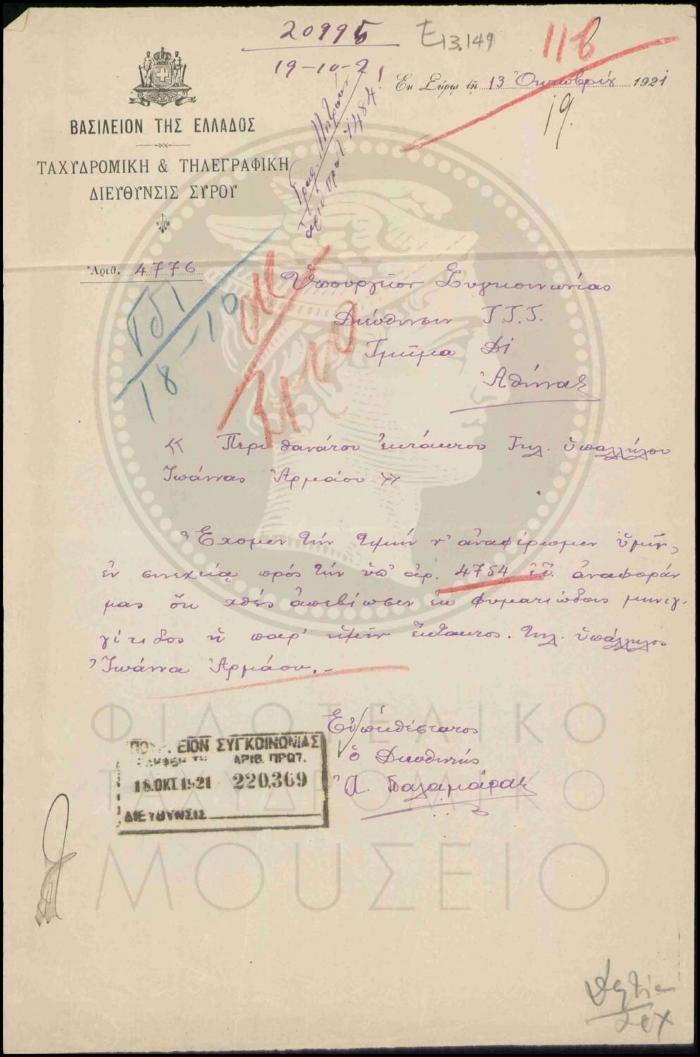 20995
Ε13.149
11β
19-10-2
Ἐν Σύρῳ τῇ 13 Ὀκτωβρίου 1921
19.
ΒΑΣΙΛΕΙΟΝ ΤΗΣ ΕΛΛΑΔΟΣ
ΤΑΧΥΔΡΟΜΙΚΗ & ΤΗΛΕΓΡΑΦΙΚΗ
ΔΙΕΥΘΥΝΣΙΣ ΣΥΡΟΥ
Ἀριθ. 4776
18-10
Ὑπουργεῖον Συγκοινωνίας
Διεύθυνσιν Τ.Τ.Τ.
Τμῆμα Δ!
Ἀθήνας
« Περὶ θανάτου ἐκτάκτου Τηλ. ὑπαλλήλου
Ἰωάννας Ἀρμάου »
Ἔχομεν τὴν τιμὴν ν' ἀναφέρωμεν ὑμῖν,
ἐν συνεχείᾳ πρὸς τὴν ὑπ' ἀρ. 4754 ἐ.ἔ. ἀναφοράν
μας ὅτι χθὲς ἀπεβίωσεν ἐκ φυματιώδους μηνιγ
γίτιδος ἡ παρ' ἡμῖν ἔκτακτος τηλ. ὑπάλληλος
Ἰωάννα Ἀρμάου.-
Εὐπειθέστατος
ὁ Διευθυντής
ΕΙΟΝ ΣΥΓΚΟΙΝΩΝΙΑΣ
ΑΡΙΘ. ΠΡΩΤ.
18.ΟΚΤ.1921 220,369
ΔΙΕΥΘΥΝΣΙΣ
ΦΙΛΟΤΕΛΙΚΟ
ΤΑΧΥΔΡΟΜΙΚΟ
ΜΟΥΣΕΙΟ